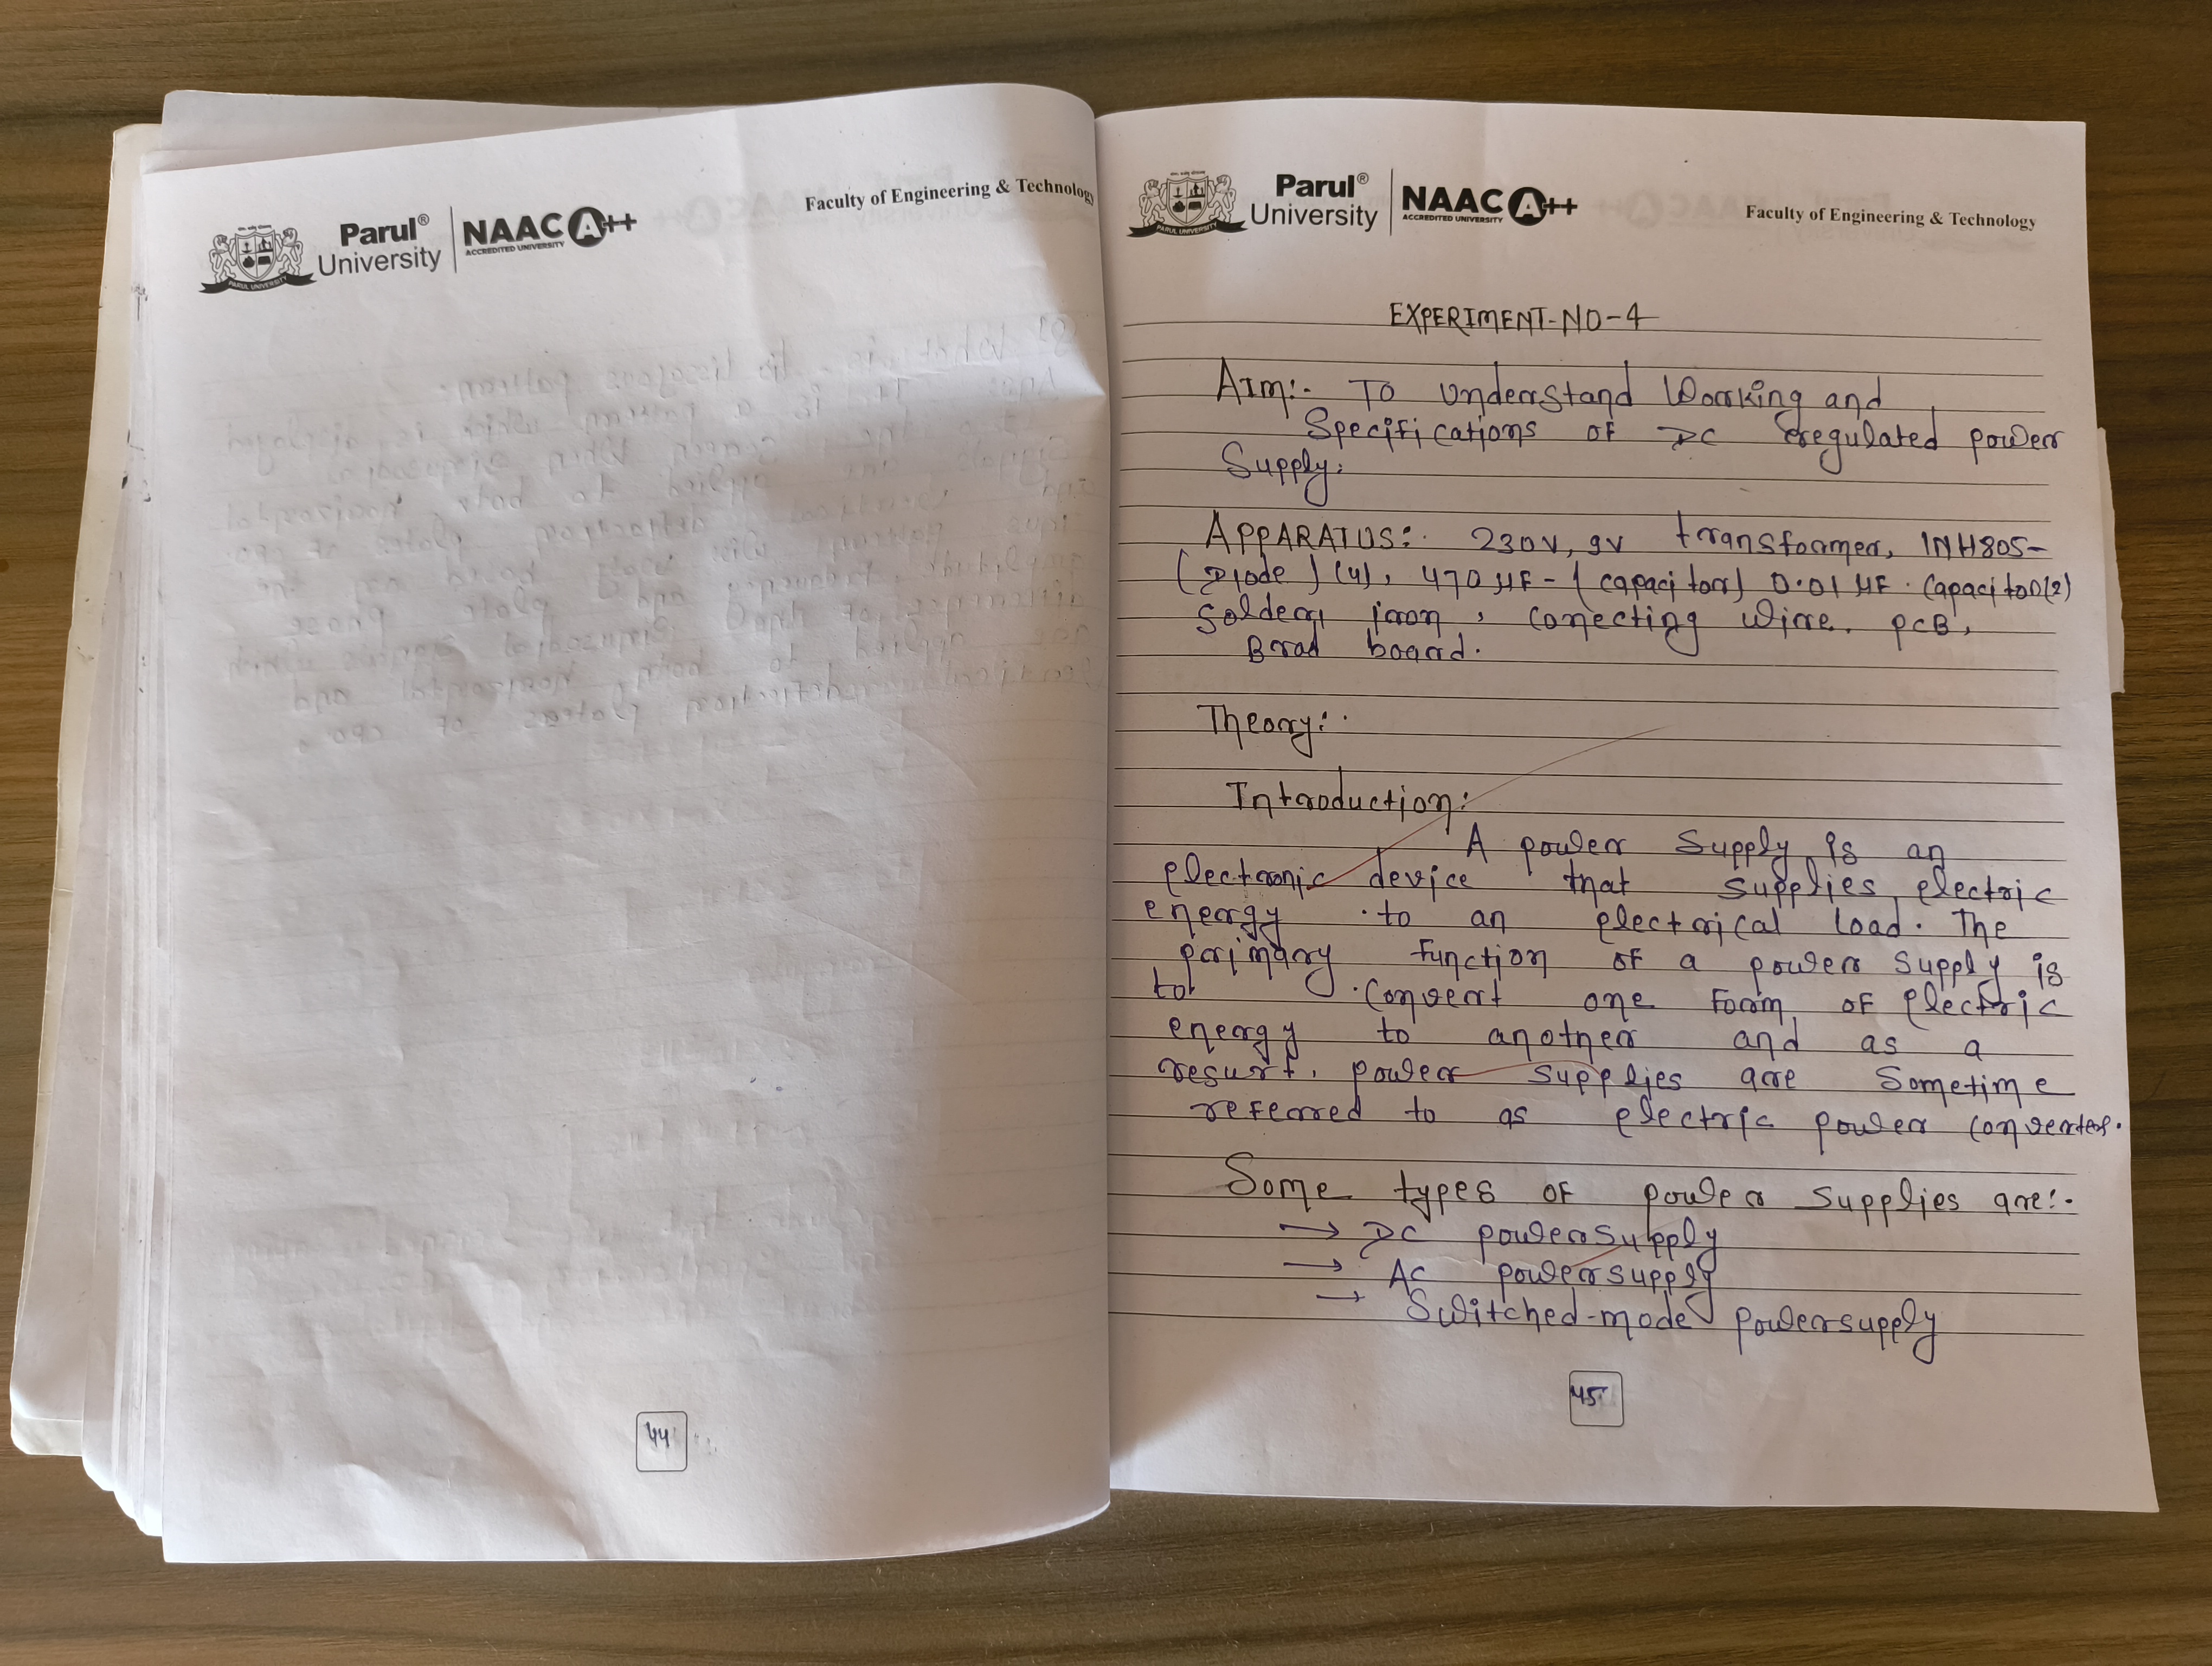 Parul®
University
NAAC A++
ACCREDITED UNIVERSITY
Faculty of Engineering & Technology
PARUL UNIVERSITY
44
Parul®
University
NAAC A++
ACCREDITED UNIVERSITY
Faculty of Engineering & Technology
PARUL UNIVERSITY
EXPERIMENT-NO-4
AIM:- TO understand Working and
Specifications OF DC regulated power
Supply.
APPARATUS:- 230V, 9V transformer, 1NH805-
(Diode) (4), 470 μF-(capacitor) 0.01 μF. capacitor(2)
Solder iron, conecting wire. PCB,
Brad board.
Theory:-
Introduction:
A power supply is an
electronic device that supplies electric
energy to an electrical load. The
primary function OF a power supply is
to convert one form OF electric
energy to another and as a
resurt. power supplies are sometime
referred to as electric power converter.
Some types OF power supplies are:-
→ DC powersupply
→ AC powersupply
→ Switched-mode powersupply
45